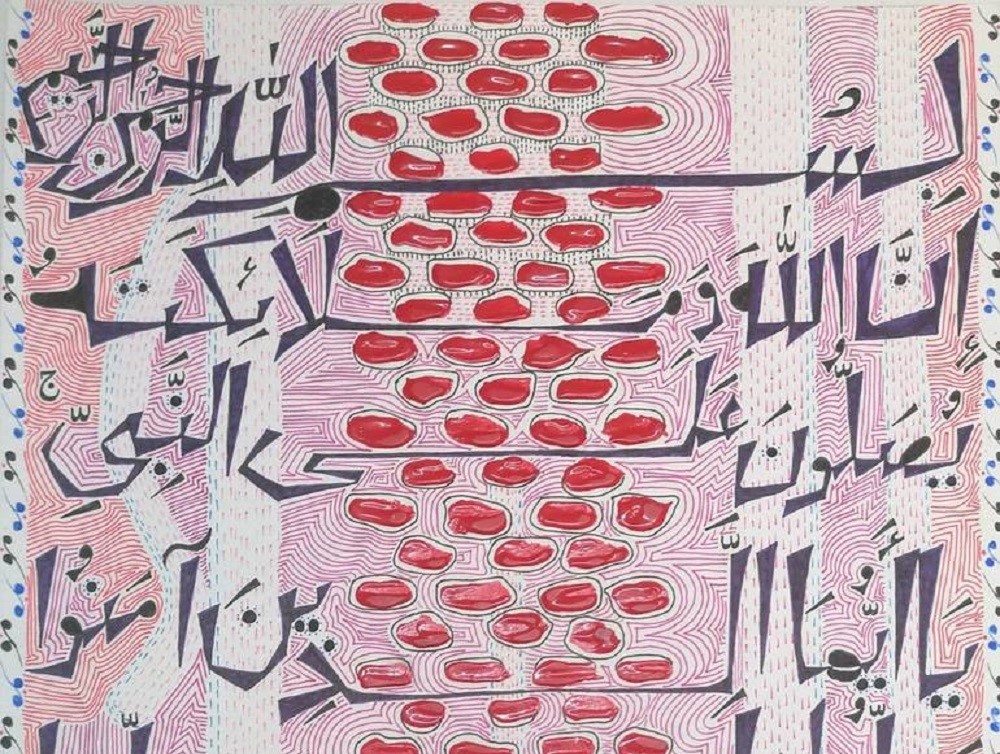 بِسْمِ اللّٰهِ الرَّحْمٰنِ الرَّحِيْمِ
اِنَّ اللّٰهَ وَمَلَائِكَتَهُ
يُصَلُّوْنَ عَلَى النَّبِيِّ ج
يَا اَيُّهَا الَّذِيْنَ آمَنُوْا